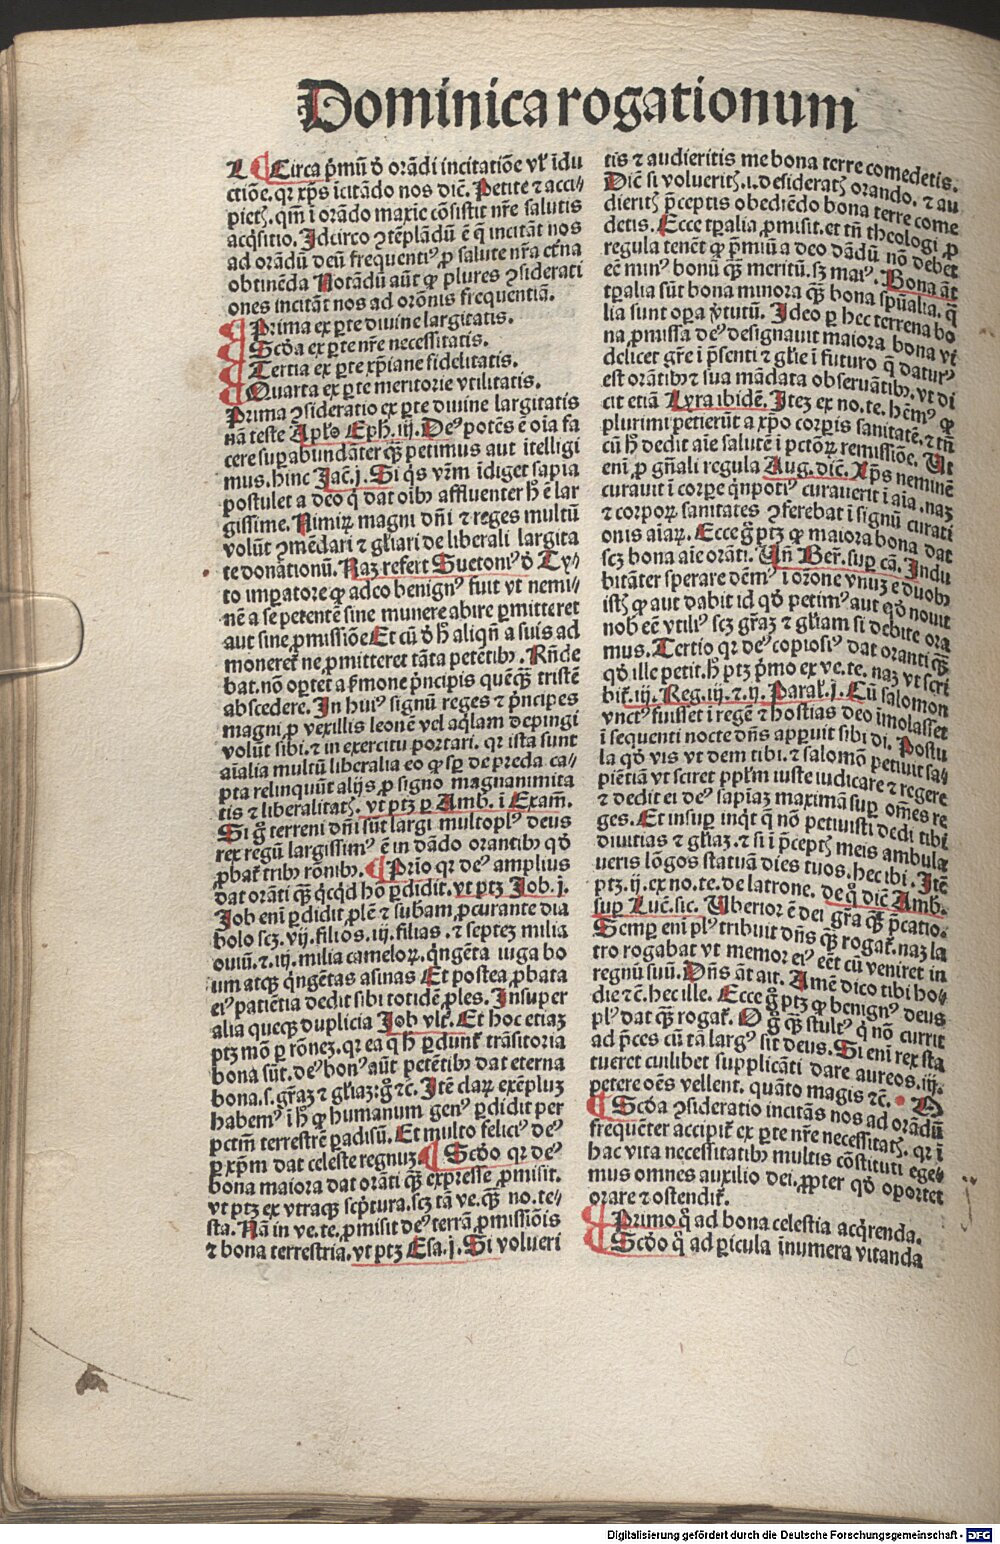 Dominica rogationum
L ¶ Circa pͥmū ꝺ̊ orādi incitatiōe vꝉ idu
ctiōe. qꝛ xp̄s īcitādo nos diē. Petite ⁊ acci⸗
pietꝫ. qm̄ ī orādo maxīe cōsistit nr̄e salutis
acq̇sitio. Idcirco ꝯtēplādū ē q̄ incitāt nos
ad orādū deū frequentiꝰ ꝓ salute nr̄a et̄na
obtinēda Notādū aūt ꝙ plures ꝯsiderati
ones incitāt nos ad orōnis frequentiā.
¶ Prima ex ꝑte diuine largitatis.
¶ Scd̄a ex ꝑte nr̄e necessitatis.
¶ Tertia ex ꝑte xp̄iane fidelitatis.
¶ Quarta ex ꝑte meritorie vtilitatis.
Prima ꝯsideratio ex ꝑte diuine largitatis
nā teste Apl̄o Eph. iij. Deꝰ potēs ē oīa fa
cere suꝑabundāter qꝫ̄ petimus aut itelligi
mus. hinc Jac̄. j. Si q̇s vr̄m īdiget sapia
postulet a deo q̇ dat oībꝫ affluenter hͦ ē lar
gissime. Nimiꝝ magni dn̄i ⁊ reges multū
volūt ꝯmēdari ⁊ gl̄iari de liberali largita
te donationū. Naꝫ refert Suetoniꝰ ꝺ̊ Ty⸗
to imꝑatore ꝙ adeo benignꝰ fuit vt nemi⸗
nē a se petentē sine munere abire ꝑmitteret
aut sine ꝓmissiōe Et cū ꝺ̊ hͦ aliqn̄ a suis ad
moneret̄ ne ꝓmitteret tāta petētibꝫ. Rn̄de
bat. nō oꝑtet a ẜmone pͥncipis quēqꝫ̄ tristē
abscedere. In huiꝰ signū reges ⁊ pͥncipes
magni ꝓ vexillis leonē vel aq̇lam depingi
volūt sibi. ⁊ in exercitu portari. qꝛ ista sunt
aīalia multū liberalia eo ꝙ sꝑ de preda ca⸗
pta relinquūt alijs ꝓ signo magnanimita
tis ⁊ liberalitatꝫ. vt ptꝫ ꝑ Amb. ī Exam̄.
Si gͦ terreni dn̄i sūt largi multoplꝰ deus
rex regū largissimꝰ ē in dādo orantibꝫ qꝺ̊
ꝓbat̄ tribꝫ rōnibꝫ. ¶ Prīo qꝛ deꝰ amplius
dat orāti qꝫ̄ q̇cq̇d hō ꝑdidit. vt ptꝫ Job. j.
Job enī ꝑdidit ꝓlē ⁊ sub̄am ꝓcurante dia
bolo scꝫ. vij. filios. iij. filias. ⁊ septeꝫ milia
ouiū. ⁊. iij. milia cameloꝝ. q̇ngēta iuga bo
um atqꝫ q̇ngētas asinas Et postea ꝓbata
eiꝰ patiētia dedit sibi totidē ꝓles. Insuper
alia quecqꝫ duplicia Job vlt̄. Et hoc etiaꝫ
ptꝫ mō ꝑ rōneꝫ. qꝛ ea q̄ hͦ ꝑdunt̄ trāsitoria
bona sūt. deꝰ bonꝰ aūt petētibꝫ dat eterna
bona. s. gr̄aꝫ ⁊ gl̄iaꝫ: gͦ ⁊c̄. Itē daꝝ exēpluꝫ
habemꝰ ī hͦ ꝙ humanum genꝰ ꝑdidit per
pctm̄ terrestrē ꝑadisū. Et multo feliciꝰ deꝰ
ꝑ xp̄m dat celeste regnuꝫ. ¶ Scd̄o qꝛ deꝰ
bona maiora dat orāti qꝫ̄ expresse ꝓmisit.
vt ptꝫ ex vtraqꝫ scpͥtura. scꝫ tā ve. qꝫ̄ no. te⸗
sta. Nā in ve. te. ꝓmisit deꝰ terrā ꝓmissiōis
⁊ bona terrestria. vt ptꝫ Esa. j. Si volueri
tis ⁊ audieritis me bona terre comedetis.
Diē si volueritꝫ. i. desideratꝫ orando. ⁊ au
dieritꝫ pͥceptis obediēdo bona terre come
detis. Ecce tꝑalia ꝓmisit. et tn̄ theologi ꝓ
regula tenēt ꝙ pͥmiū a deo dādū nō debet
eē minꝰ bonū qꝫ̄ meritū. sꝫ maiꝰ. Bona āt
tꝑalia sūt bona minora qꝫ̄ bona spūalia. q̄
lia sunt oꝑa v̇tutū. Ideo ꝑ hec terrena bo
na ꝓmissa deꝰ designauit maiora bona vꝫ
delicet gr̄e ī pͥsenti ⁊ gl̄ie ī futuro q̄ daturꝰ
est orātibꝫ ⁊ sua mādata obseruātibꝫ. vt di
cit etiā Lyra ibidē. Iteꝫ ex no. te. hēmꝰ ꝙ
plurimi petierūt a xp̄o corꝑis sanitatē. ⁊ tn̄
cū hͦ dedit aīe salutē ī pctōꝝ remissiōe. Ut
enī ꝓ gn̄ali regula Aug. diē. Xp̄s neminē
curauit ī corꝑe q̇npotiꝰ curauerit ī aīa. naꝫ
⁊ corpoꝝ sanitates ꝯferebat ī signū curati
onis aīaꝝ. Ecce gͦ ptꝫ ꝙ maiora bona dat
scꝫ bona aīe orāti. Un̄ Ber̄. suꝑ cā. Indu
bitāter sperare dēmꝰ ī orōne vnuꝫ e duobꝫ
istꝫ ꝙ aut dabit id qꝺ̊ petimꝰ aut qꝺ̊ nouit
nob eē vtiliꝰ scꝫ gr̄aꝫ ⁊ gl̄iam si debite ora
mus. Tertio qꝛ deꝰ copiosiꝰ dat oranti qꝫ̄
qꝺ̊ ille petit. hͦ ptꝫ pͥmo ex ve. te. naꝫ vt scri
bit̄. iij. Reg. iij. ⁊. ij. Paral̄. j. Cū salomon
vnctꝰ fuisset ī regē ⁊ hostias deo imolasset
ī sequenti nocte dn̄s apꝑuit sibi di. Postu
la qꝺ̊ vis vt dem tibi. ⁊ salomō petiuit sa⸗
piētiā vt sciret pplm̄ iuste iudicare ⁊ regere
⁊ dedit ei deꝰ sapīaꝫ maximā suꝑ om̄es re
ges. Et insuꝑ inq̇t q̄ nō petiuisti dedi tibi
diuitias ⁊ gl̄iaꝫ. ⁊ si ī pͥceptꝫ meis ambula
ueris lōgos statuā dies tuos. hec ibi. Itē
ptꝫ. ij. ex no. te. de latrone. de q̊ diē Amb.
suꝑ Luc̄. sic. Uberior ē dei gr̄a qꝫ̄ pͥcatio.
Semꝑ enī plꝰ tribuit dn̄s qꝫ̄ rogat̄. naꝫ la
tro rogabat vt memor eiꝰ eēt cū veniret in
regnū suū. Dn̄s āt ait. Amē dico tibi ho⸗
die ⁊c̄. hec ille. Ecce gͦ ptꝫ ꝙ benignꝰ deus
plꝰ dat qꝫ̄ rogat̄. O gͦ qꝫ̄ stultꝰ q̇ nō currit
ad pͥces cū tā largꝰ sit deus. Si enī rex sta
tueret cuilibet supplicāti dare aureos. iij.
petere oēs vellent. quāto magis ⁊c̄.
¶ Scd̄a ꝯsideratio incitās nos ad orādū
frequēter accipit̄ ex ꝑte nr̄e necessitatꝫ. qꝛ ī
hac vita necessitatibꝫ multis cōstituti ege⸗
mus omnes auxilio dei. ꝓpter qꝺ̊ oportet
orare ⁊ ostendit̄.
¶ Primo q̊ ad bona celestia acq̇renda.
¶ Scd̄o q̊ ad ꝑicula īnumera vitanda
Digitalisierung gefördert durch die Deutsche Forschungsgemeinschaft - DFG